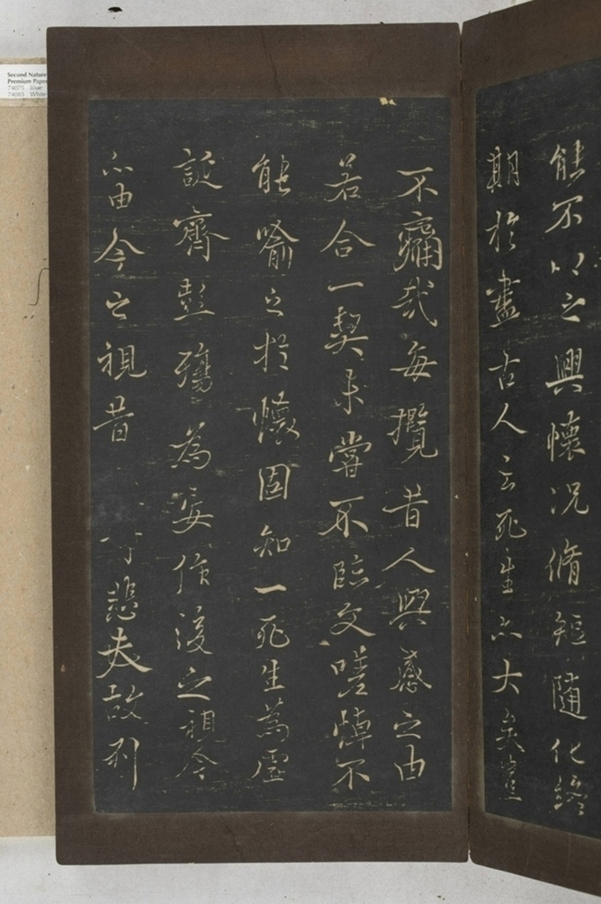 能不以之興懷況脩短隨化終
期於盡古人云死生亦大矣豈
不痛哉每攬昔人興感之由
若合一契未嘗不臨文嗟悼不
能喻之於懷固知一死生為虛
誕齊彭殤為妄作後之視今
亦由今之視昔 悲夫故列
Second Nature
Premium Paper
Blue
White